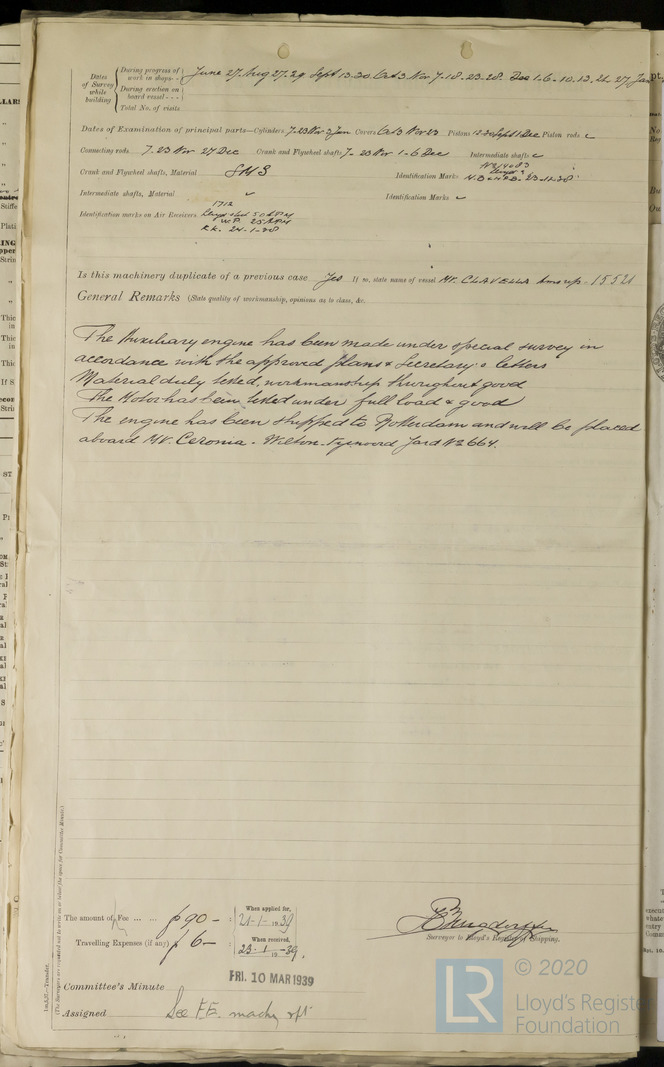 Dates of Survey while building
During progress of work in shops - -
June 27. Aug 27. 29 Sept 13. 30. Oct 3 Nov 7-18-23-28. Dec 1-6-10-13-21-27 Jan
During erection on board vessel - - -
Total No. of visits
Dates of Examination of principal parts—Cylinders 7-23 Nov 3 Jan Covers Oct 3 Nov 23 Pistons Sept 1 Dec Piston rods
Connecting rods 7-23 Nov 27 Dec Crank and Flywheel shafts 7-23 Nov 1-6 Dec Intermediate shafts
Crank and Flywheel shafts, Material SMS Identification Marks Lloyd's 23-11-38
Intermediate shafts, Material Identification Marks
Identification marks on Air Receivers
1712
W.P. 25 ATM
K.K. 24-1-38
Is this machinery duplicate of a previous case Yes If so, state name of vessel MV. CLAVELLA Ams rep. 15521
General Remarks (State quality of workmanship, opinions as to class, &c.
The Auxiliary engine has been made under special survey in
accordance with the approved plans & Secretary's letters
Material duly tested, workmanship throughout good
The Motor has been tested under full load & good
The engine has been shipped to Rotterdam and will be placed
aboard MV. Ceronia - Wilton-Fyenoord Yard No 664.
(The Surveyors are requested not to write on or below the space for Committee's Minute.)
The amount of Fee ... ... ƒ 90 - : When applied for, 21-1-1939
Travelling Expenses (if any) ƒ 6 - : When received, 23.1.1939.
Surveyor to Lloyd's Register of Shipping.
FRI. 10 MAR 1939
Committee's Minute
Assigned See F.E. machy rpt
© 2020
LR
Lloyd's Register
Foundation